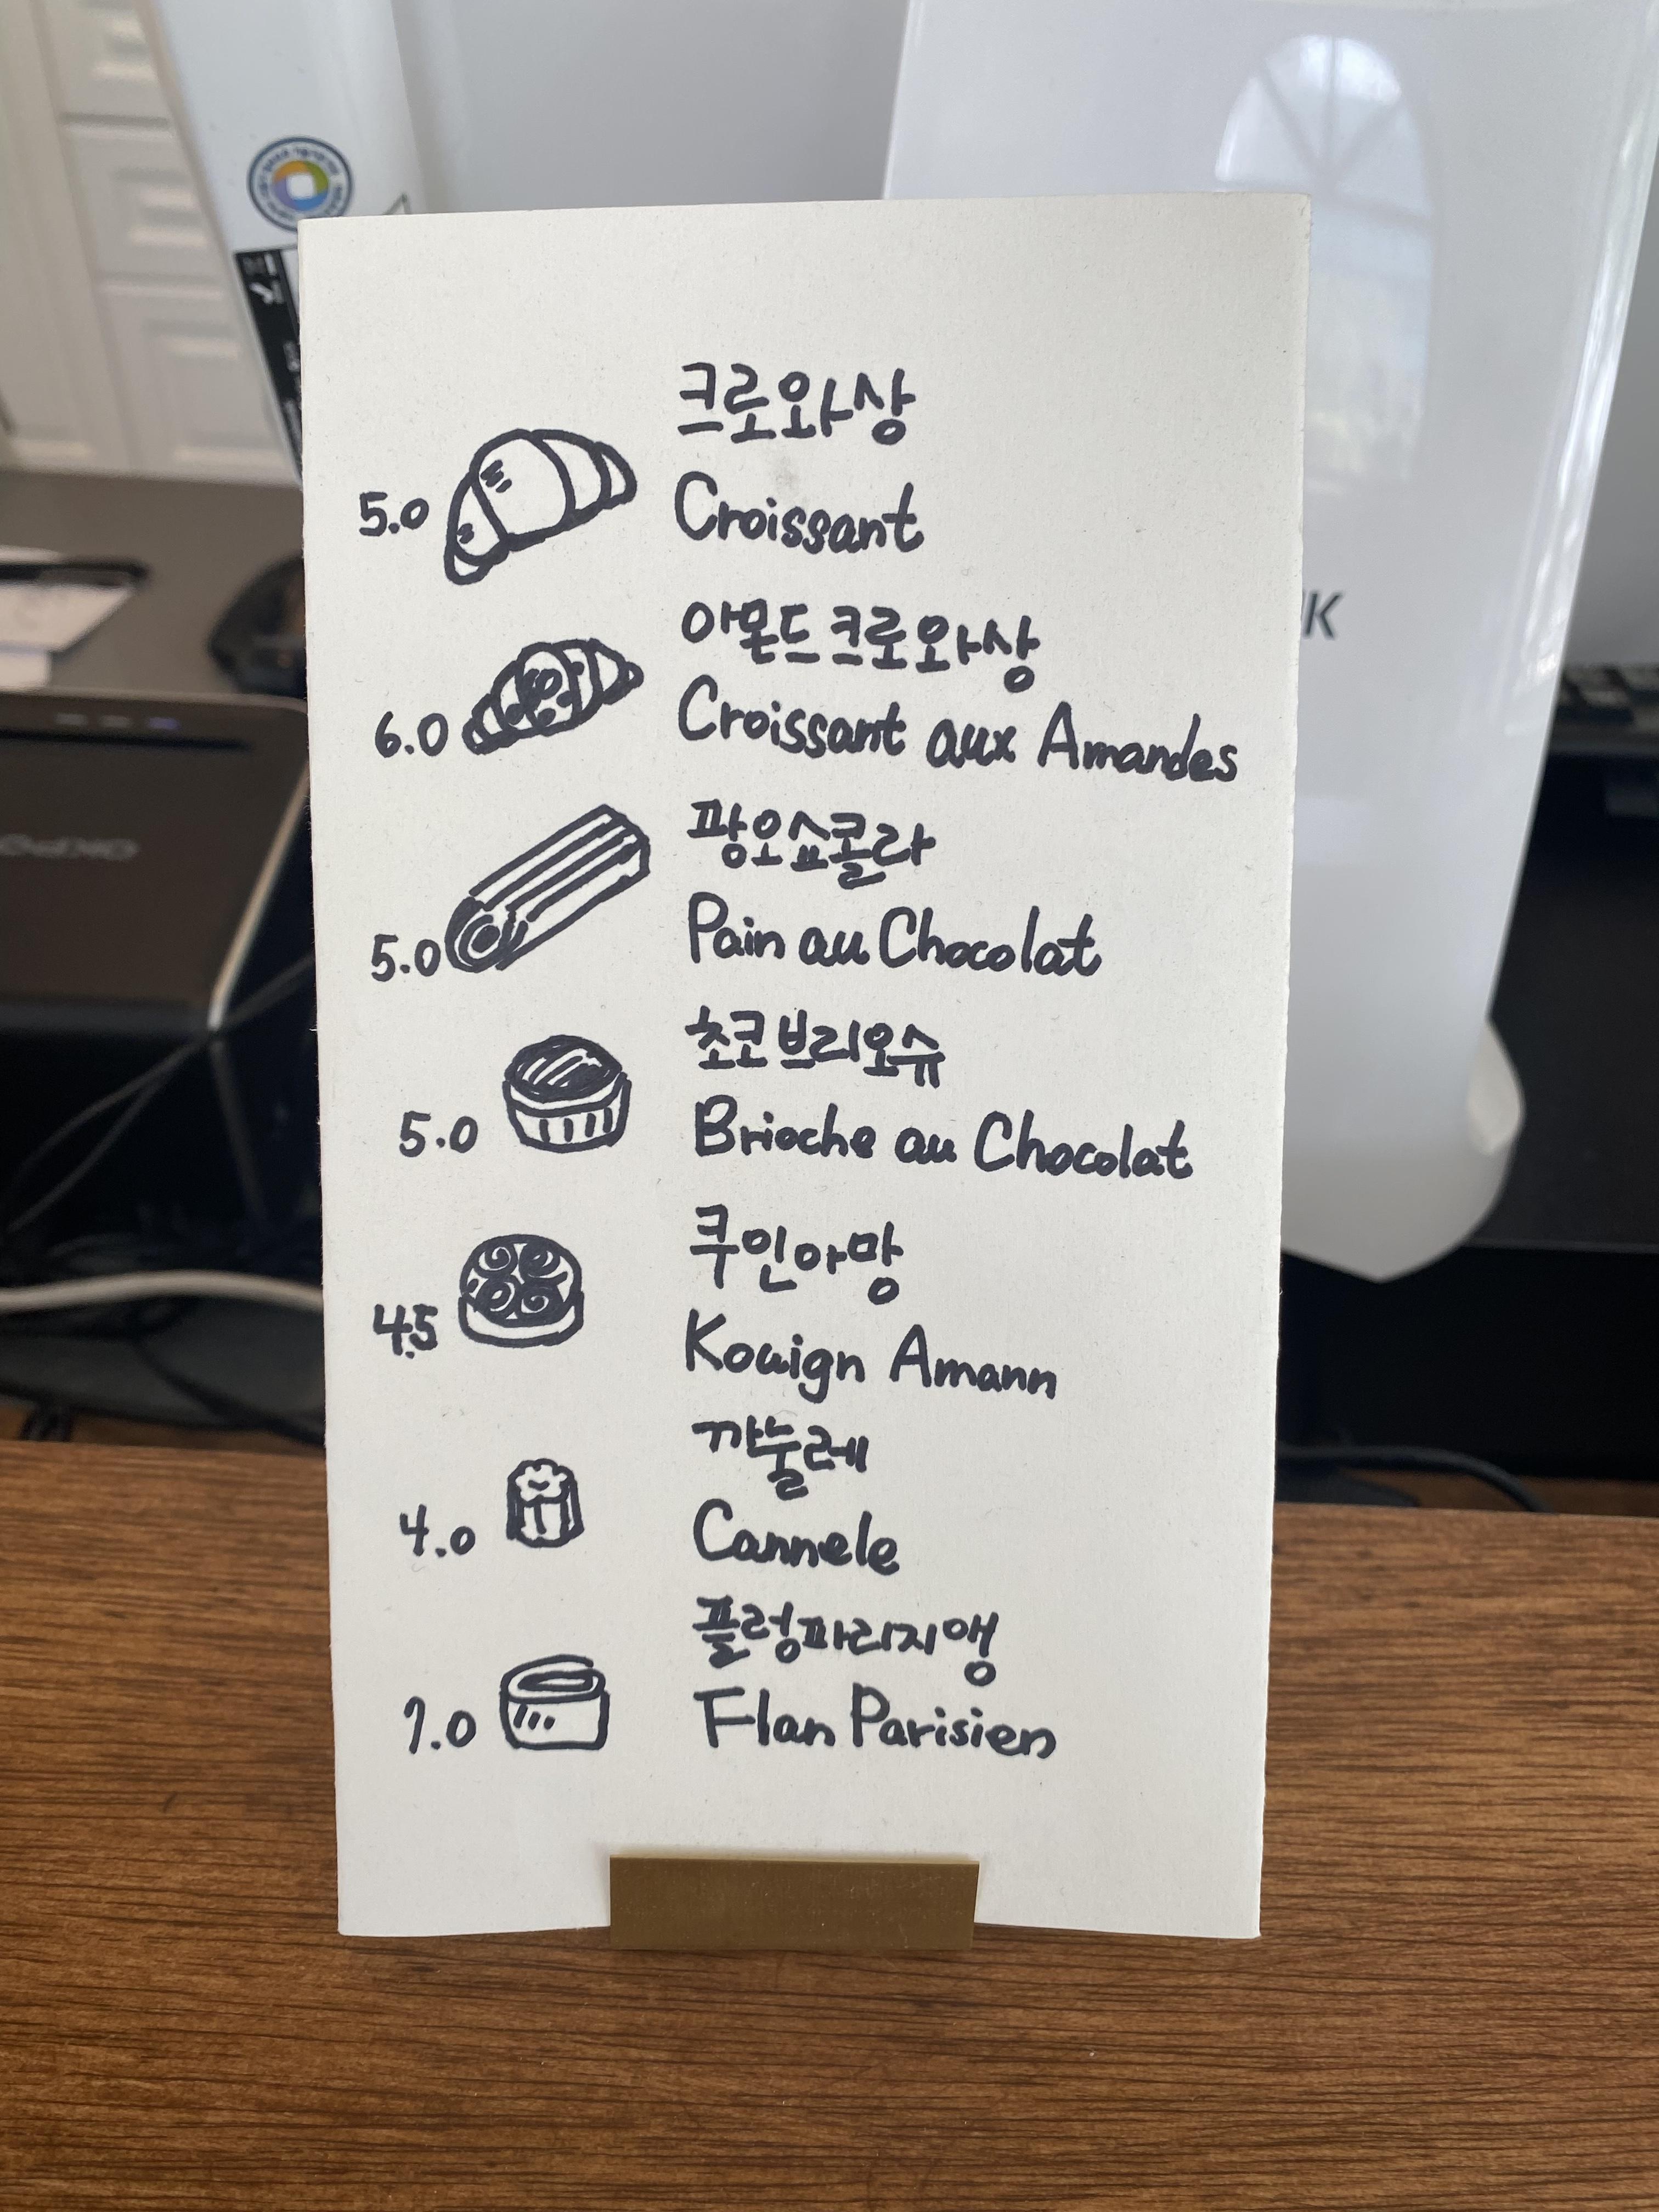 크로와상
5.0 Croissant
아몬드 크로와상
6.0 Croissant aux Amandes
팡오쇼콜라
5.0 Pain au Chocolat
초코 브리오슈
5.0 Brioche au Chocolat
쿠인아망
4.5 Kouign Amann
까눌레
4.0 Cannele
플렁파리지앵
7.0 Flan Parisien